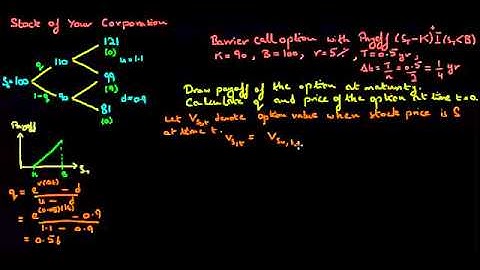 Stock of Your Corporation
Barrier call option with Payoff (S_T-K)^+ I(S_T<B)
K=90, B=100, r=5%, T=0.5yr,
Δt = T/n = 0.5/2 = 1/4 yr
121
(0)
q
110
u=1.1
S_0=100
99
(9)
1-q
90
d=0.9
81
(0)
Draw payoff of the option at maturity.
Calculate q and price of the option at time t=0.
Let V_S,t denote option value when stock price is S
at time t.
V_S,t = V_Su,t
Payoff
K
B
S_T
q = e^r(Δt) - d / u - d
= e^(0.05)(1/4) - 0.9 / 1.1 - 0.9
= 0.56